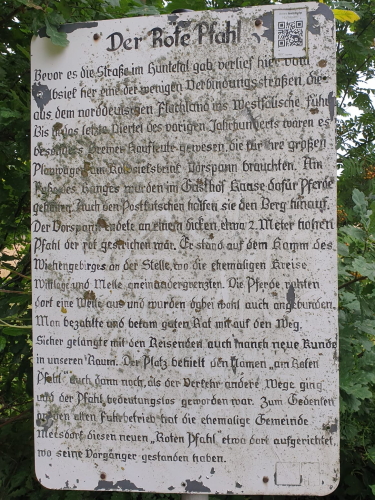 Der Rote Pfahl
Bevor es die Straße im Huntetal gab, verlief hier vom
her eine der wenigen Verbindungsstraßen, die
aus dem norddeutschen Flachland ins Westfälische führt
Bis in das letzte Viertel des vorigen Jahrhunderts waren es
besonders Bremer Kaufleute gewesen, die für ihre großen
Planwagen am Vorspann brauchten. Am
Fuße des Hanges wurden im Gasthof Haase dafür Pferde
gehalten. Auch den Postkutschen halfen sie den Berg hinauf.
Der Vorspann endete an einem dicken, etwa 2 Meter hohen
Pfahl der rot gestrichen war. Er stand auf dem Kamm des
Wiehengebirges an der Stelle, wo die ehemaligen Kreise
Wittlage und Melle aneinandergrenzten. Die Pferde ruhten
dort eine Weile aus und wurden dabei wohl auch angebunden.
Man bezahlte und bekam guten Rat mit auf den Weg.
Sicher gelangte mit den Reisenden auch manch neue Kunde
in unseren Raum. Der Platz behielt den Namen „am Roten
Pfahl" auch dann noch, als der Verkehr andere Wege ging
und der Pfahl bedeutungslos geworden war. Zum Gedenken
an den alten Fuhrbetrieb hat die ehemalige Gemeinde
Meesdorf diesen neuen „Roten Pfahl" etwa dort aufgerichtet,
wo seine Vorgänger gestanden haben.